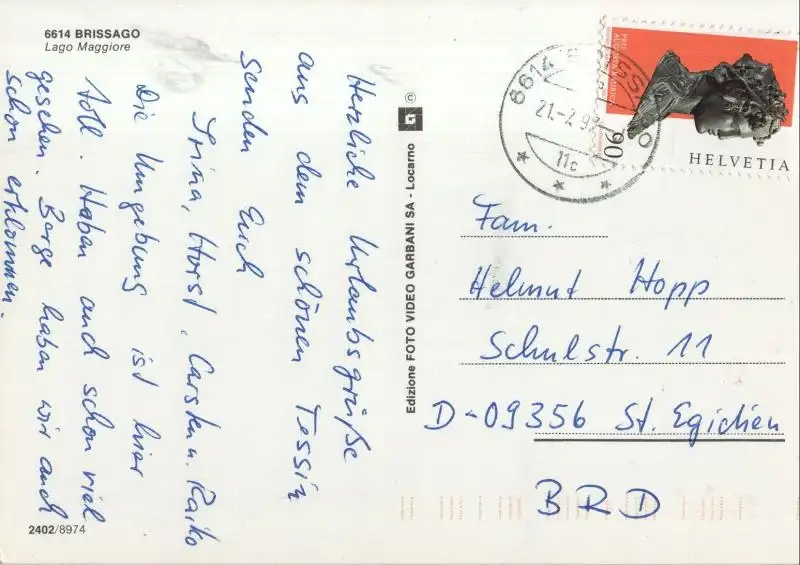 6614 BRISSAGO
Lago Maggiore
Herzliche Urlaubsgrüße
aus dem schönen Tessin
senden Euch
Irina, Horst, Carsten u. Raiko
Die Umgebung ist hier
toll. Haben auch schon viel
gesehen. Berge haben wir auch
schon erklommen.
2402/8974
Edizione FOTO VIDEO GARBANI SA - Locarno
©
6614 BRISSAGO
21.-7.92
11c
PRO
90
HELVETIA
Fam.
Helmut Hopp
Schulstr. 11
D-09356 St. Egidien
BRD